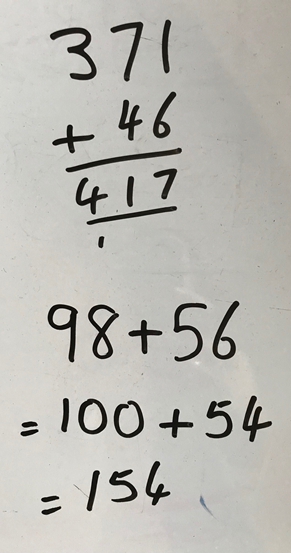 371
+ 46
417
1
98+56
= 100 + 54
= 154